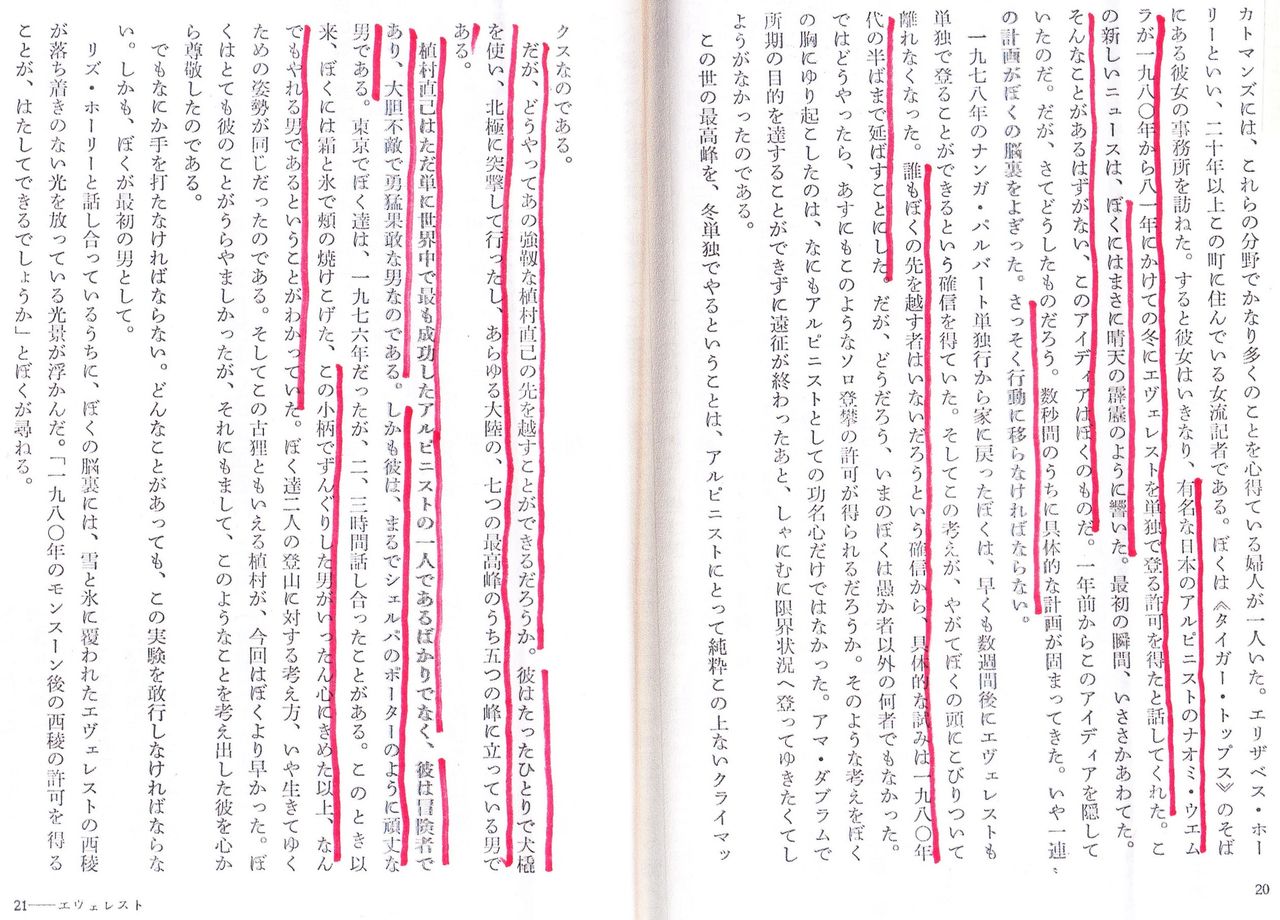 カトマンズには、これらの分野でかなり多くのことを心得ている婦人が一人いた。エリザベス・ホー
リーといい、二十年以上この町に住んでいる女流記者である。ぼくは《タイガー・トップス》のそば
にある彼女の事務所を訪ねた。すると彼女はいきなり、有名な日本のアルピニストのナオミ・ウエム
ラが一九八〇年から八一年にかけての冬にエヴェレストを単独で登る許可を得たと話してくれた。こ
の新しいニュースは、ぼくにはまさに晴天の霹靂のように響いた。最初の瞬間、いささかあわてた。
そんなことがあるはずがない、このアイディアはぼくのものだ。一年前からこのアイディアを隠して
いたのだ。だが、さてどうしたものだろう。数秒間のうちに具体的な計画が固まってきた。いや一連
の計画がぼくの脳裏をよぎった。さっそく行動に移らなければならない。
一九七八年のナンガ・パルバート単独行から家に戻ったぼくは、早くも数週間後にエヴェレストも
単独で登ることができるという確信を得ていた。そしてこの考えが、やがてぼくの頭にこびりついて
離れなくなった。誰もぼくの先を越す者はいないだろうという確信から、具体的な試みは一九八〇年
代の半ばまで延ばすことにした。だが、どうだろう、いまのぼくは愚か者以外の何者でもなかった。
ではどうやったら、あすにもこのようなソロ登攀の許可が得られるだろうか。そのような考えをぼく
の胸にゆり起こしたのは、なにもアルピニストとしての功名心だけではなかった。アマ・ダブラムで
所期の目的を達することができずに遠征が終わったあと、しゃにむに限界状況へ登ってゆきたくてし
ようがなかったのである。
この世の最高峰を、冬単独でやるということは、アルピニストにとって純粋この上ないクライマッ
20
クスなのである。
だが、どうやってあの強靱な植村直己の先を越すことができるだろうか。彼はたったひとりで犬橇
を使い、北極に突撃して行ったし、あらゆる大陸の、七つの最高峰のうち五つの峰に立っている男で
ある。
植村直己はただ単に世界中で最も成功したアルピニストの一人であるばかりでなく、彼は冒険者で
あり、大胆不敵で勇猛果敢な男なのである。しかも彼は、まるでシェルパのポーターのように頑丈な
男である。東京でぼく達は、一九七六年だったが、二、三時間話し合ったことがある。このとき以
来、ぼくには霜と氷で頬の焼けこげた、この小柄でずんぐりした男がいったん心にきめた以上、なん
でもやれる男であるということがわかっていた。ぼく達二人の登山に対する考え方、いや生きてゆく
ための姿勢が同じだったのである。そしてこの古狸ともいえる植村が、今回はぼくより早かった。ぼ
くはとても彼のことがうらやましかったが、それにもまして、このようなことを考え出した彼を心か
ら尊敬したのである。
でもなにか手を打たなければならない。どんなことがあっても、この実験を敢行しなければならな
い。しかも、ぼくが最初の男として。
リズ・ホーリーと話し合っているうちに、ぼくの脳裏には、雪と氷に覆われたエヴェレストの西稜
が落ち着きのない光を放っている光景が浮かんだ。「一九八〇年のモンスーン後の西稜の許可を得る
ことが、はたしてできるでしょうか」とぼくが尋ねる。
21──エヴェレスト